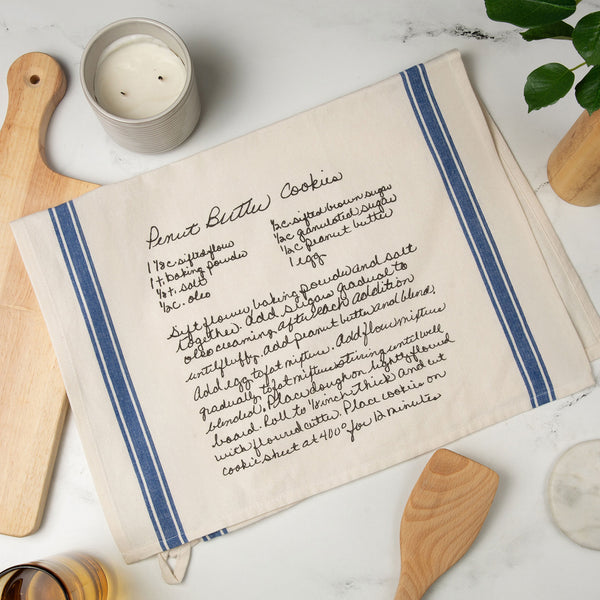 Penut Butter Cookies
1 1/8 c. sifted flow
1 t. baking powder
1/8 t. salt
1/2 c. oleo
1/2 c. sifted brown sugar
1/2 c. granulated sugar
1/2 c. peanut butter
1 egg
Sift flour, baking powder and salt
together. Add sugars gradual to
oleo creaming after each addition
until fluffy. Add peanut butter and blend.
Add egg to fat mixture. Add flow mixture
gradually to fat mixture stirring until well
blended. Place dough on lightly floured
board. Roll to 1/8 inch thick and cut
with floured cutter. Place cookies on
cookie sheet at 400° for 12 minutes